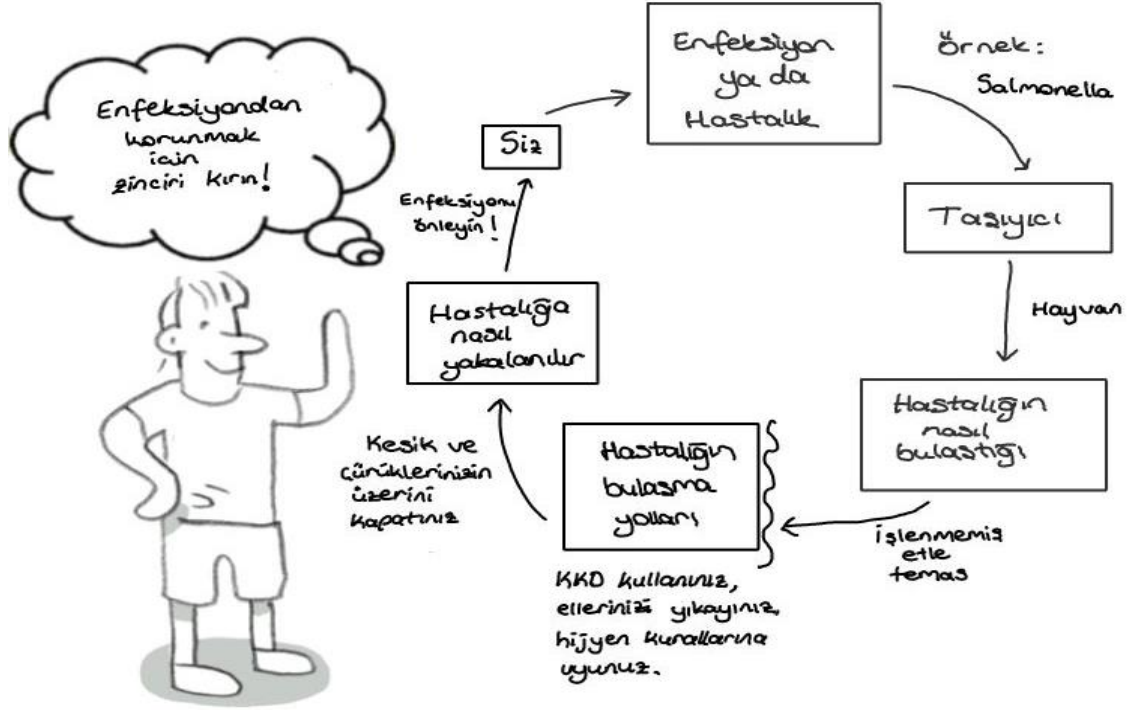 Enfeksiyondan
korunmak
için
zinciri kırın!
Siz
Enfeksiyon
ya da
Hastalık
Örnek:
Salmonella
Taşıyıcı
Hayvan
Hastalığın
nasıl
bulaştığı
İşlenmemiş
etle
temas
Hastalığın
bulaşma
yolları
KKD kullanınız,
ellerinizi yıkayınız,
hijyen kurallarına
uyunuz.
Kesik ve
çürüklerinizin
üzerini
kapatınız
Hastalığa
nasıl
yakalanılır
Enfeksiyonu
önleyin!